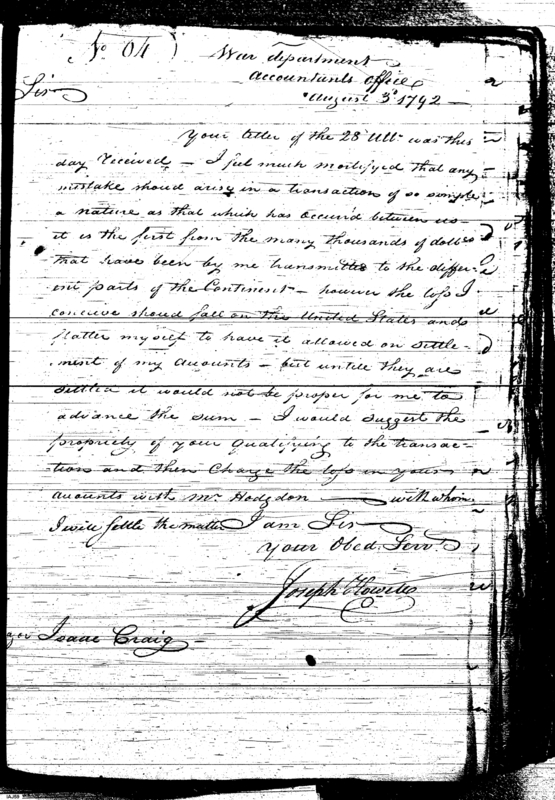 No 04
War department
Accountants office
August 3d 1792 —
Sir
Your letter of the 28 Ult. was this
day received — I feel much mortifyed that any
mistake should arise in a transaction of so simple
a nature as that which has occur'd between us —
it is the first from the many thousands of dollrs
that have been by me transmitted to the differ-
ent parts of the Continent — however the loss I
conceive should fall on the United States and
flatter myself to have it allowed on settle-
ment of my accounts — but untill they are
settled it would not be proper for me to
advance the sum — I would suggest the
propriety of your Qualifying to the transac-
tion and then Charge the loss in your
accounts with Mr Hodgdon — with whom
I will settle the matter I am Sir
Your Obed. Servt
Joseph Howell
Isaac Craig —